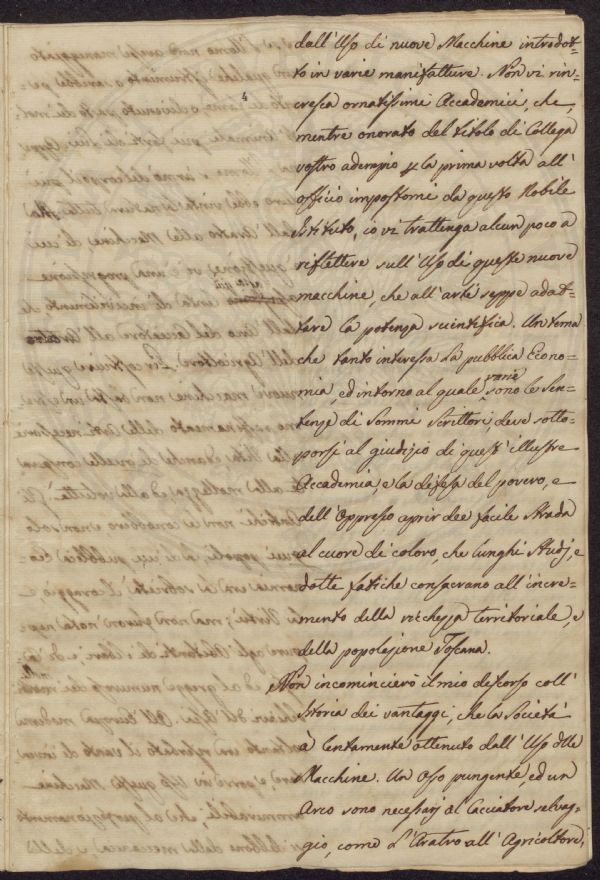 dall'Uso di nuove Macchine introdot-
to in varie manifatture. Non vi rin-
cresca ornatissimi Accademici, che
mentre onorato del titolo di Collega
vostro adempio p la prima volta all'
officio impostomi da questo Nobile
Istituto, io vi trattenga alcun poco a
riflettere sull'Uso di queste nuove
macchine, che all'arte seppe adat-
tare la potenza scientifica. Un tema
che tanto interessa la pubblica Econo-
mia, ed intorno al quale varie sono le Sen-
tenze di Sommi Scrittori, deve sotto-
porsi al giudizio di quest'illustre
Accademia, e la difesa del povero, e
dell'Oppresso aprir dee facile Strada
al cuore di coloro, che lunghi Studj, e
dotte fatiche consacrano all'incre-
mento della ricchezza territoriale, e
della popolazione Toscana.
Non incomincierò il mio discorso coll'
Istoria dei vantaggi, che la Società
à lentamente ottenuto dall'Uso dlle
Macchine. Un Oso pungente, ed un
Arco sono necessarj al Cacciatore selvag-
gio, come l'Aratro all'Agricoltore,
4